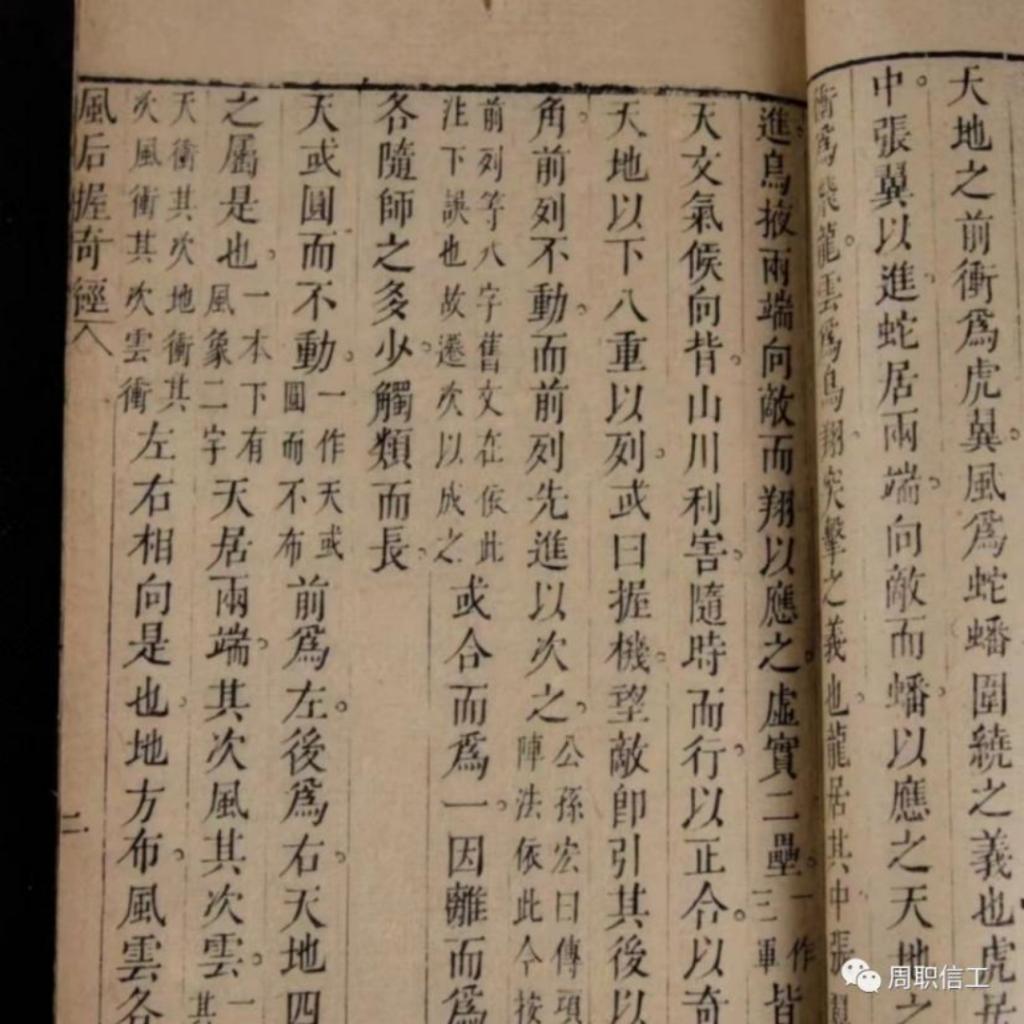 天地之前衝爲虎翼風爲蛇蟠圍繞之義也虎居
中。張翼以進。蛇居兩端。向敵而蟠。以應之天地之
衝爲飛龍。雲爲鳥翔突擊之義也。龍居其中張翼
進。鳥掖兩端向敵而翔以應之。虛實二壘。一作三軍皆
天文氣候向背。山川利害。隨時而行。以正合。以奇
天地以下八重以列。或曰握機。望敵即引其後以
角。前列不動。而前列先進以次之。公孫宏曰傳項陣法依此今按
前列等八字舊文在依此注下誤也故遷次以成之或合而爲一。因離而爲
各隨師之多少。觸類而長。
天或圓而不動。一作天或圓而不布前爲左。後爲右。天地四
之屬是也。一本下有風象二字天居兩端。其次風其次雲。一其
天衝其次地衝其次風衝其次雲衝左右相向是也。地方布。風雲各
風后握奇經
二
周职信工